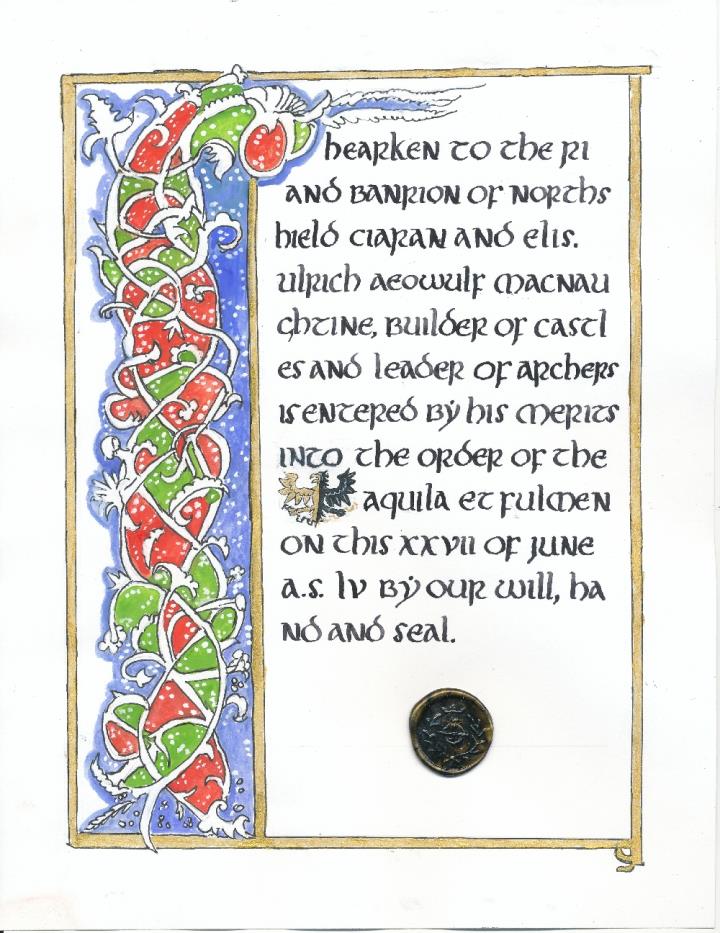 hearken to the ri
and banrion of norths
hield ciaran and elis.
ulrich aeowulf macnau
ghtine, builder of castl
es and leader of archers
is entered by his merits
into the order of the
aquila et fulmen
on this xxvii of june
a.s. lv by our will, ha
nd and seal.